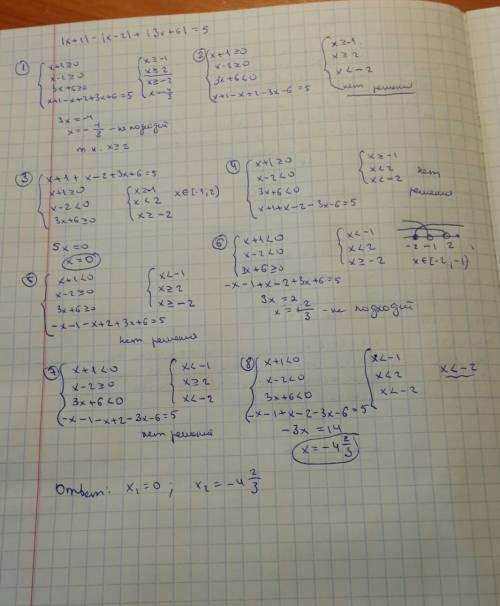 |x+1| - |x-2| + |3x+6| = 5
① { x+1≥0
x-2≥0
3x+6≥0
x+1-x+2+3x+6=5
{ x≥-1
x≥2
x≥-2
x=-4/3
3x=-4
x=-4/3 - не подходит
т.к. x≥2
② { x+1≥0
x-2≥0
3x+6<0
x+1-x+2-3x-6=5
{ x≥-1
x≥2
x<-2
нет решения
③ { x+1+x-2+3x+6=5
x+1≥0
x-2<0
3x+6≥0
{ x≥-1
x<2
x≥-2
x∈[-1,2)
5x=0
x=0
④ { x+1≥0
x-2<0
3x+6<0
x+1+x-2-3x-6=5
{ x≥-1
x<2
x<-2
нет
решения
⑤ { x+1<0
x-2≥0
3x+6≥0
-x-1-x+2+3x+6=5
{ x<-1
x≥2
x≥-2
нет решения
⑥ { x+1<0
x-2<0
3x+6≥0
-x-1+x-2+3x+6=5
{ x<-1
x<2
x≥-2
-2 -1 2
x∈[-2,-1)
3x=2
x=2/3 - не подходит
⑦ { x+1<0
x-2≥0
3x+6<0
-x-1-x+2-3x-6=5
{ x<-1
x≥2
x<-2
нет решения
⑧ { x+1<0
x-2<0
3x+6<0
-x-1+x-2-3x-6=5
{ x<-1
x<2
x<-2
x<-2
-3x=14
x=-4 2/3
Ответ: x₁=0; x₂=-4 2/3